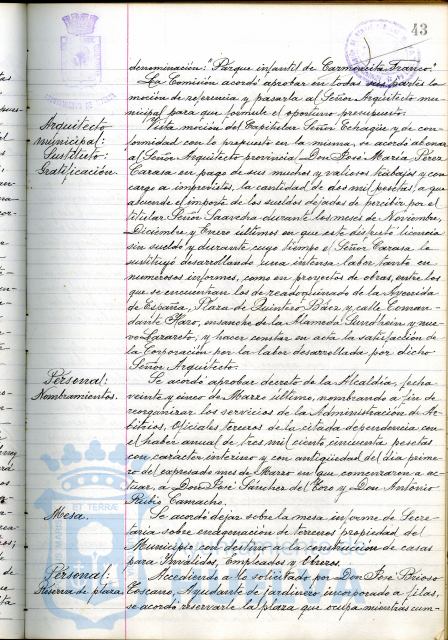 43
denominación: "Parque infantil de Carmencita Franco".
La Comisión acordó aprobar en todas sus partes la
moción de referencia y pasarla al Señor Arquitecto mu-
nicipal para que formule el oportuno presupuesto.
Arquitecto
municipal:
Sustituto:
Gratificación.
Vista moción del Capitular Señor Echagüe y de con-
formidad con lo propuesto en la misma, se acordó abonar
al Señor Arquitecto provincial Don José María Pérez
Carasa en pago de sus muchos y valiosos trabajos y con
cargo a imprevistos, la cantidad de dos mil pesetas, a que
asciende el importe de los sueldos dejados de percibir por el
titular Señor Saavedra durante los meses de Noviembre,
Diciembre y Enero últimos en que este disfrutó licencia
sin sueldo y durante cuyo tiempo el Señor Carasa le
sustituyó desarrollando una intensa labor tanto en
numerosos informes, como en proyectos de obras, entre los
que se encuentran los de readoquinado de la Avenida
de España, Plaza de Quintero Báez y calle Coman-
dante Haro, ensanche de la Alameda Sundheim y nue-
vo Lazareto, y hacer constar en acta la satisfacción de
la Corporación por la labor desarrollada por dicho
Señor Arquitecto.
Personal:
Nombramientos.
Se acordó aprobar decreto de la Alcaldía, fecha
veinte y cinco de Marzo último, nombrando a fin de
reorganizar los servicios de la Administración de Ar-
bitrios, Oficiales terceros de la citada dependencia con
el haber anual de tres mil ciento cincuenta pesetas
con carácter interino y con antigüedad del día prime-
ro del expresado mes de Marzo en que comenzaron a ac-
tuar, a Don José Sánchez del Toro y Don Antonio
Rubio Camacho.
Mesa.
Se acordó dejar sobre la mesa informe de Secre-
taría sobre enagenación de terrenos propiedad del
Municipio con destino a la construcción de casas
para Inválidos, Empleados y Obreros.
Personal:
Reserva de plaza.
Accediendo a lo solicitado por Don José Brioso
Toscano, Ayudante de jardinero incorporado a filas,
se acordó reservarle la plaza que ocupa mientras cum-